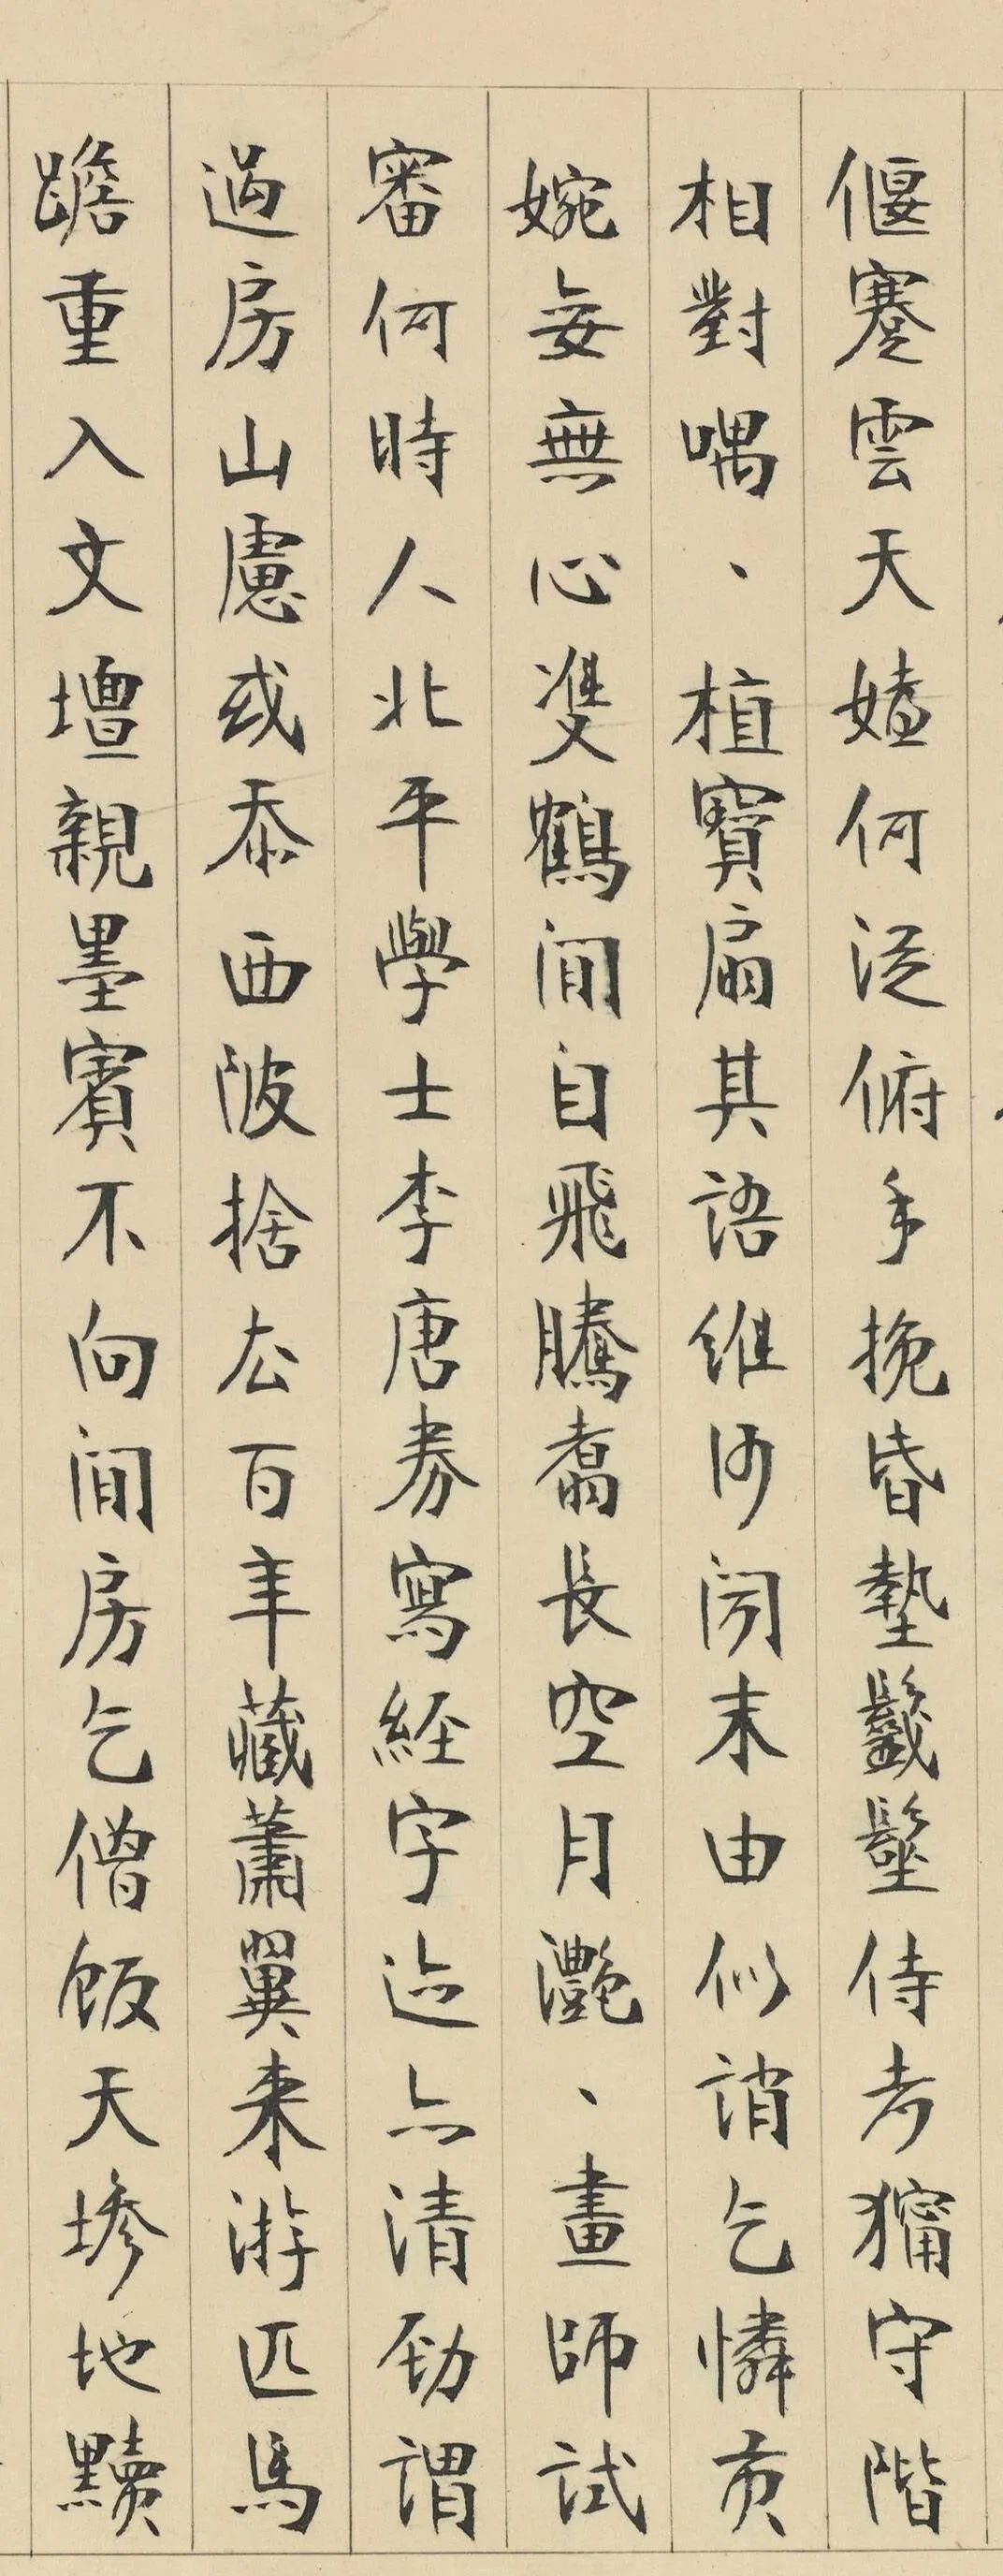 偃蹇雲天㛫何泛俯手挽昏墊鬣鬉侍者獰守階
相對喁、植寶扇其語維何聞末由似誚乞憐貢
婉妾無心雙鶴閒自飛騰翥長空月灔、畫師試
審何時人北平學士李唐券寫經字迹亦清勁謂
過房山慮或忝西陂捨去百年藏蕭翼来游匹馬
蹌重入文壇親墨賓不向閒房乞僧飯天墋地黷